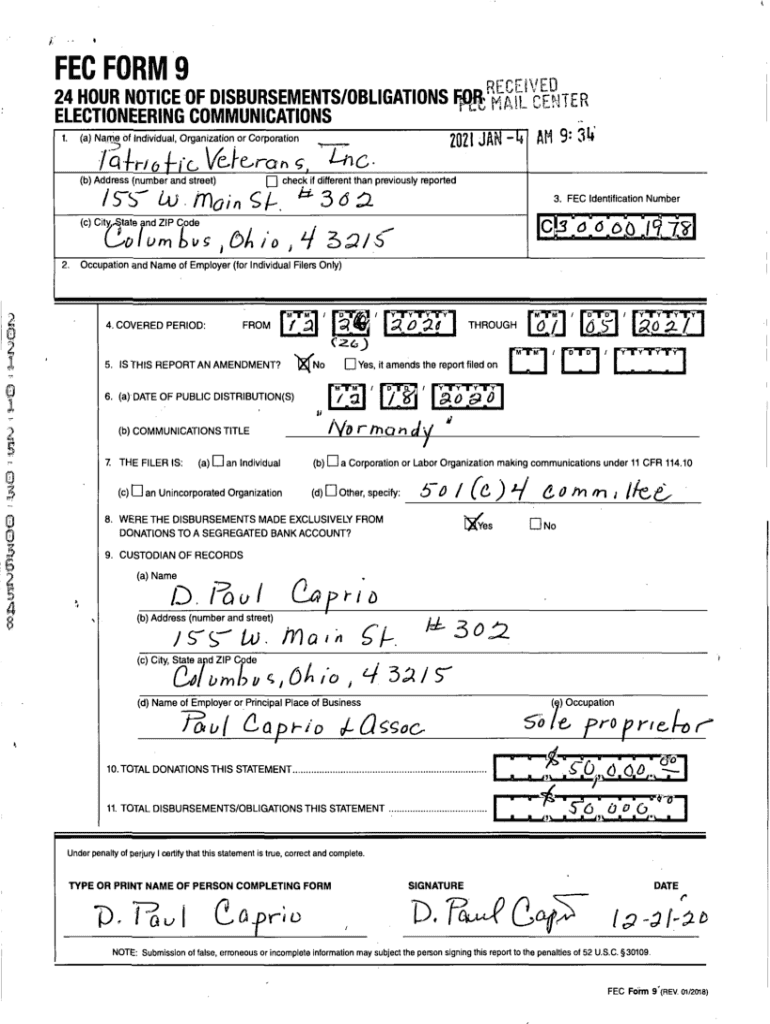 FEC FORM 9
24 HOUR NOTICE OF DISBURSEMENTS/OBLIGATIONS FOR
ELECTIONEERING COMMUNICATIONS
RECEIVED
FEC MAIL CENTER
2021 JAN -4 AM 9: 34
1. (a) Name of Individual, Organization or Corporation
Patriotic Veterans, Inc.
(b) Address (number and street) check if different than previously reported
155 W. Main St. # 302
(c) City, State and ZIP Code
Columbus, Ohio, 43215
3. FEC Identification Number
C 30000 1978
2. Occupation and Name of Employer (for Individual Filers Only)
4. COVERED PERIOD: FROM 12 / 26 / 2020 THROUGH 01 / 05 / 2021
(26)
5. IS THIS REPORT AN AMENDMENT? No Yes, it amends the report filed on
6. (a) DATE OF PUBLIC DISTRIBUTION(S) 12 / 18 / 2020
(b) COMMUNICATIONS TITLE "Normandy"
7. THE FILER IS: (a) an Individual (b) a Corporation or Labor Organization making communications under 11 CFR 114.10
(c) an Unincorporated Organization (d) Other, specify: 501(c)4 committee
8. WERE THE DISBURSEMENTS MADE EXCLUSIVELY FROM
DONATIONS TO A SEGREGATED BANK ACCOUNT? Yes No
9. CUSTODIAN OF RECORDS
(a) Name
D. Paul Caprio
(b) Address (number and street)
155 W. Main St. # 302
(c) City, State and ZIP Code
Columbus, Ohio, 43215
(d) Name of Employer or Principal Place of Business (e) Occupation
Paul Caprio & Assoc Sole proprietor
10. TOTAL DONATIONS THIS STATEMENT $ 50,000.00
11. TOTAL DISBURSEMENTS/OBLIGATIONS THIS STATEMENT $ 50 000 00
Under penalty of perjury I certify that this statement is true, correct and complete.
TYPE OR PRINT NAME OF PERSON COMPLETING FORM SIGNATURE DATE
D. Paul Caprio D. Paul Caprio 12-21-20
NOTE: Submission of false, erroneous or incomplete information may subject the person signing this report to the penalties of 52 U.S.C. §30109.
FEC Form 9 (REV. 01/2018)
2021-01-25-03-00362548